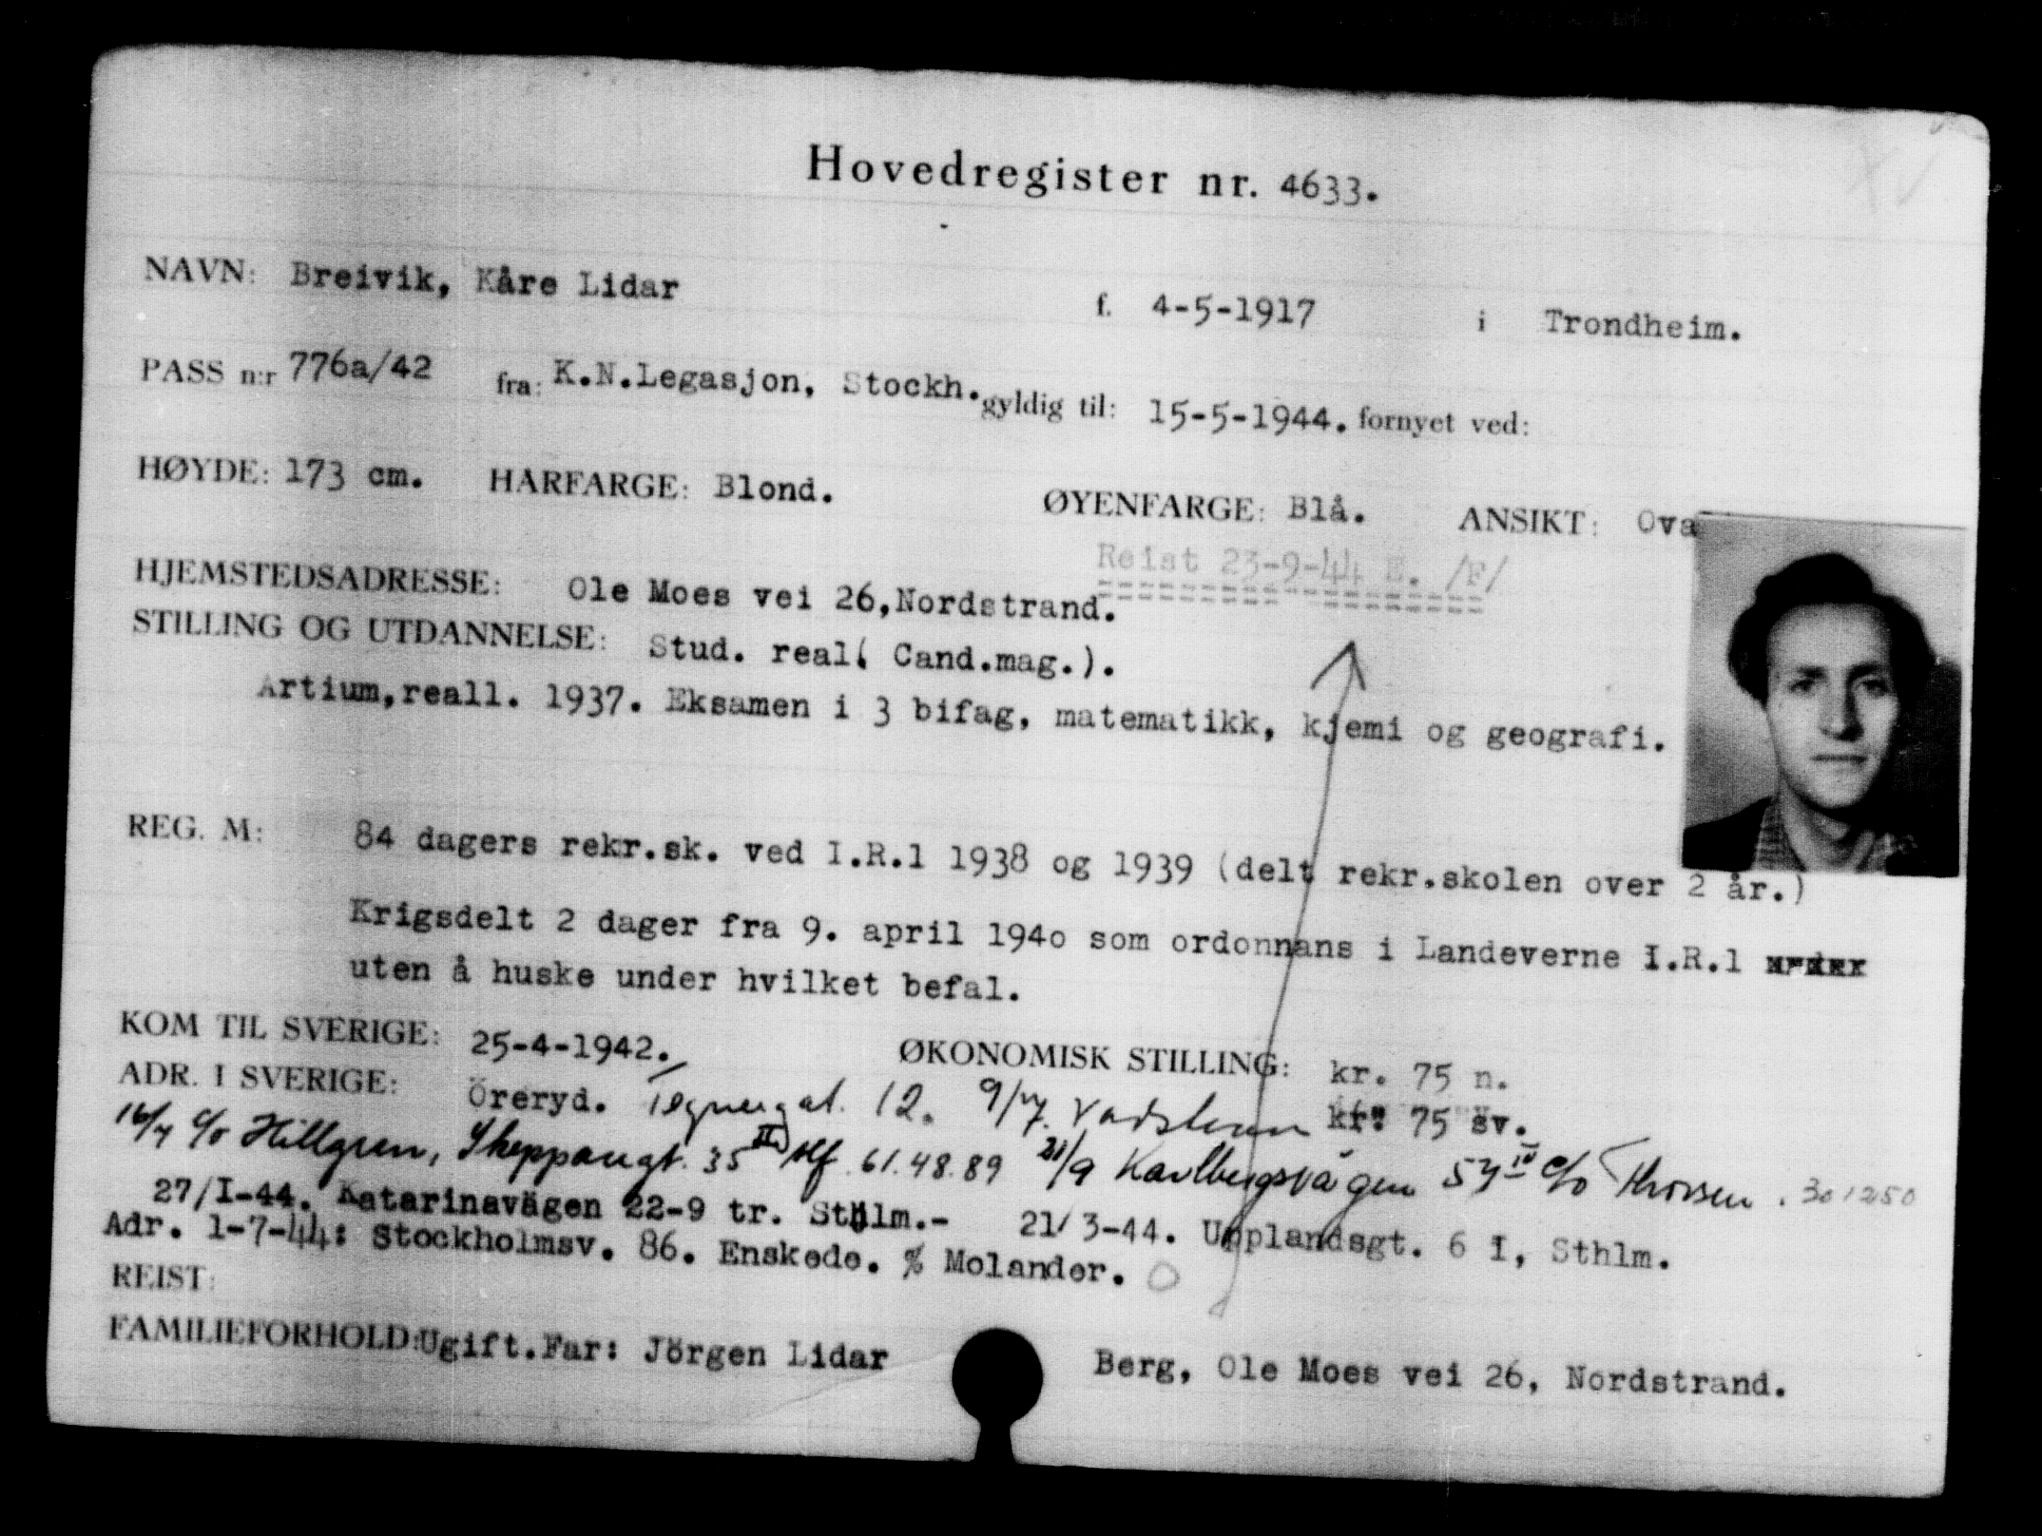 Hovedregister nr. 4633.
NAVN: Breivik, Kåre Lidar f. 4-5-1917 i Trondheim.
PASS n:r 776a/42 fra: K.N.Legasjon, Stockh. gyldig til: 15-5-1944. fornyet ved:
HØYDE: 173 cm. HÅRFARGE: Blond. ØYENFARGE: Blå. ANSIKT: Ova
Reist 23-9-44 E. /F/
HJEMSTEDSADRESSE: Ole Moes vei 26, Nordstrand.
STILLING OG UTDANNELSE: Stud. real( Cand.mag.).
Artium,reall. 1937. Eksamen i 3 bifag, matematikk, kjemi og geografi.
REG. M: 84 dagers rekr.sk. ved I.R.1 1938 og 1939 (delt rekr.skolen over 2 år.)
Krigsdelt 2 dager fra 9. april 1940 som ordonnans i Landeverne I.R.1
uten å huske under hvilket befal.
KOM TIL SVERIGE: 25-4-1942. ØKONOMISK STILLING: kr. 75 n.
ADR. I SVERIGE: Öreryd. 12. Vadstena kr: 75 sv.
16/7 c/o Hillgren, Skeppargt. 35 III tlf. 61.48.89 21/9 Karlbergsvägen 57 IV c/o Thorsen. 301250
27/I-44. Katarinavägen 22-9 tr. Sthlm.- 21/3-44. Upplandsgt. 6 I, Sthlm.
Adr. 1-7-44: Stockholmsv. 86. Enskede. % Molander.
REIST:
FAMILIEFORHOLD: Ugift. Far: Jörgen Lidar Berg, Ole Moes vei 26, Nordstrand.